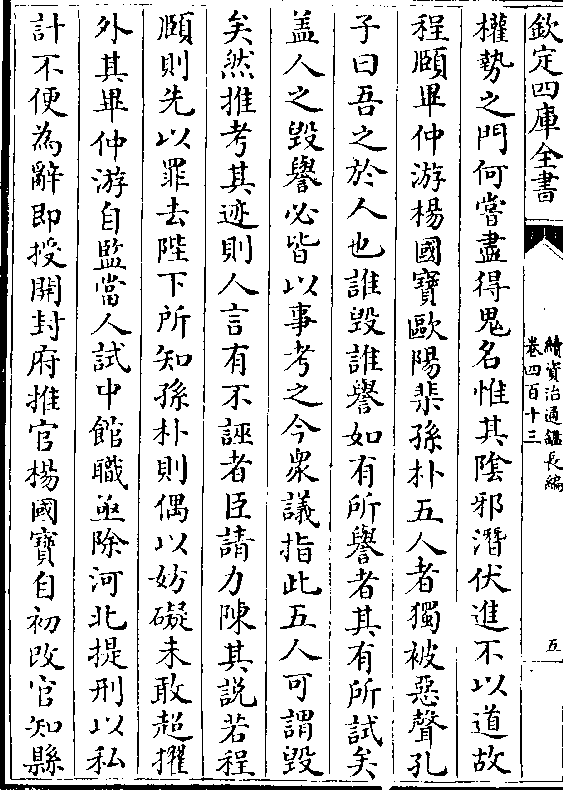 欽定四庫全書
續資治通鑑長編
卷四百十三
五
權勢之門何嘗盡得鬼名惟其陰邪潛伏進不以道故
程頤畢仲游楊國寶歐陽棐孫朴五人者獨被惡聲孔
子曰吾之於人也誰毀誰譽如有所譽者其有所試矣
盖人之毀譽必皆以事考之今衆議指此五人可謂毀
矣然推考其迹則人言有不誣者臣請力陳其說若程
頤則先以罪去陛下所知孫朴則偶以妨礙未敢超擢
外其畢仲游自監當人試中館職亟除河北提刑以私
計不便為辭即授開封府推官楊國寶自初改官知縣